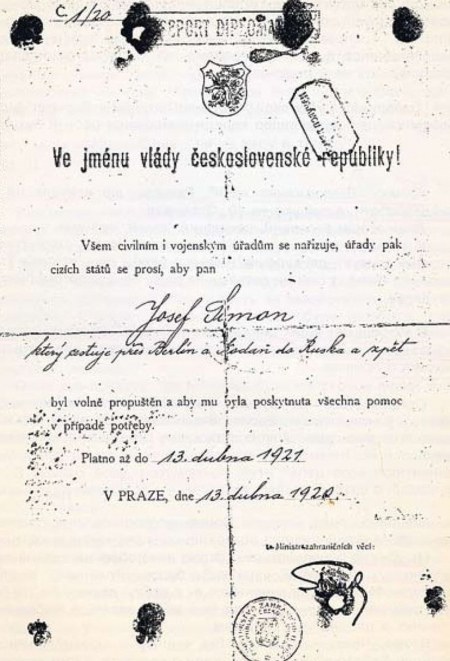 Č 1/20
PASSEPORT DIPLOMATIQUE
Ve jménu vlády československé republiky!
Všem civilním i vojenským úřadům se nařizuje, úřady pak
cizích států se prosí, aby pan
Josef Šimon
který cestuje přes Berlín a Kodaň do Ruska a zpět
byl volně propuštěn a aby mu byla poskytnuta všechna pomoc
v případě potřeby.
Platno až do 13. dubna 1921
V PRAZE, dne 13. dubna 1920.
Ministra zahraničních věcí: